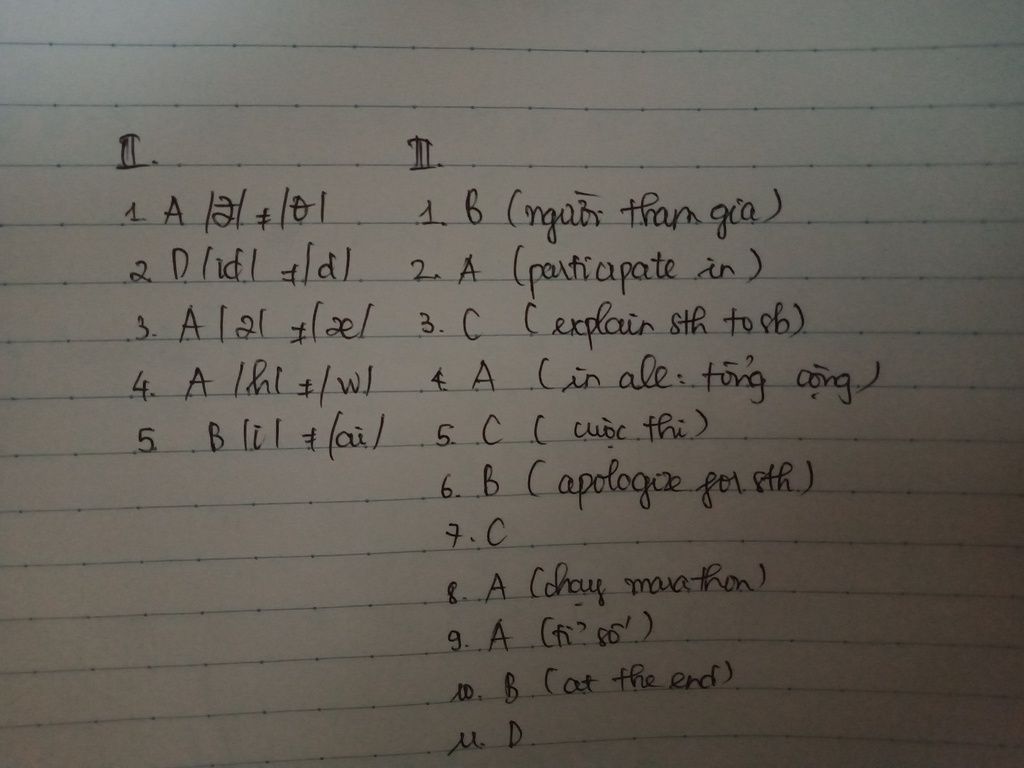 II.
1. A /ə/ ≠ /ɵ/
2 D /id/ ≠ /d/
3. A /ə/ ≠ /æ/
4. A /h/ ≠ /w/
5. B /i/ ≠ /ai/
III.
1. B (người tham gia)
2. A (participate in)
3. C (explain sth to sb)
4 A (in all: tổng cộng)
5. C (cuộc thi)
6. B (apologize for sth)
7. C
8. A (chạy marathon)
9. A (tỉ số)
10. B (at the end)
11. D